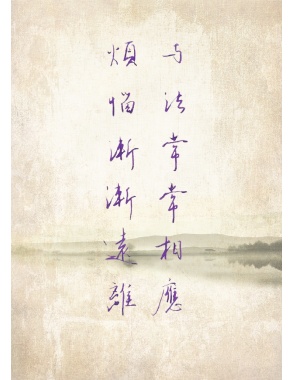 与法常常相應
煩惱漸漸遠離